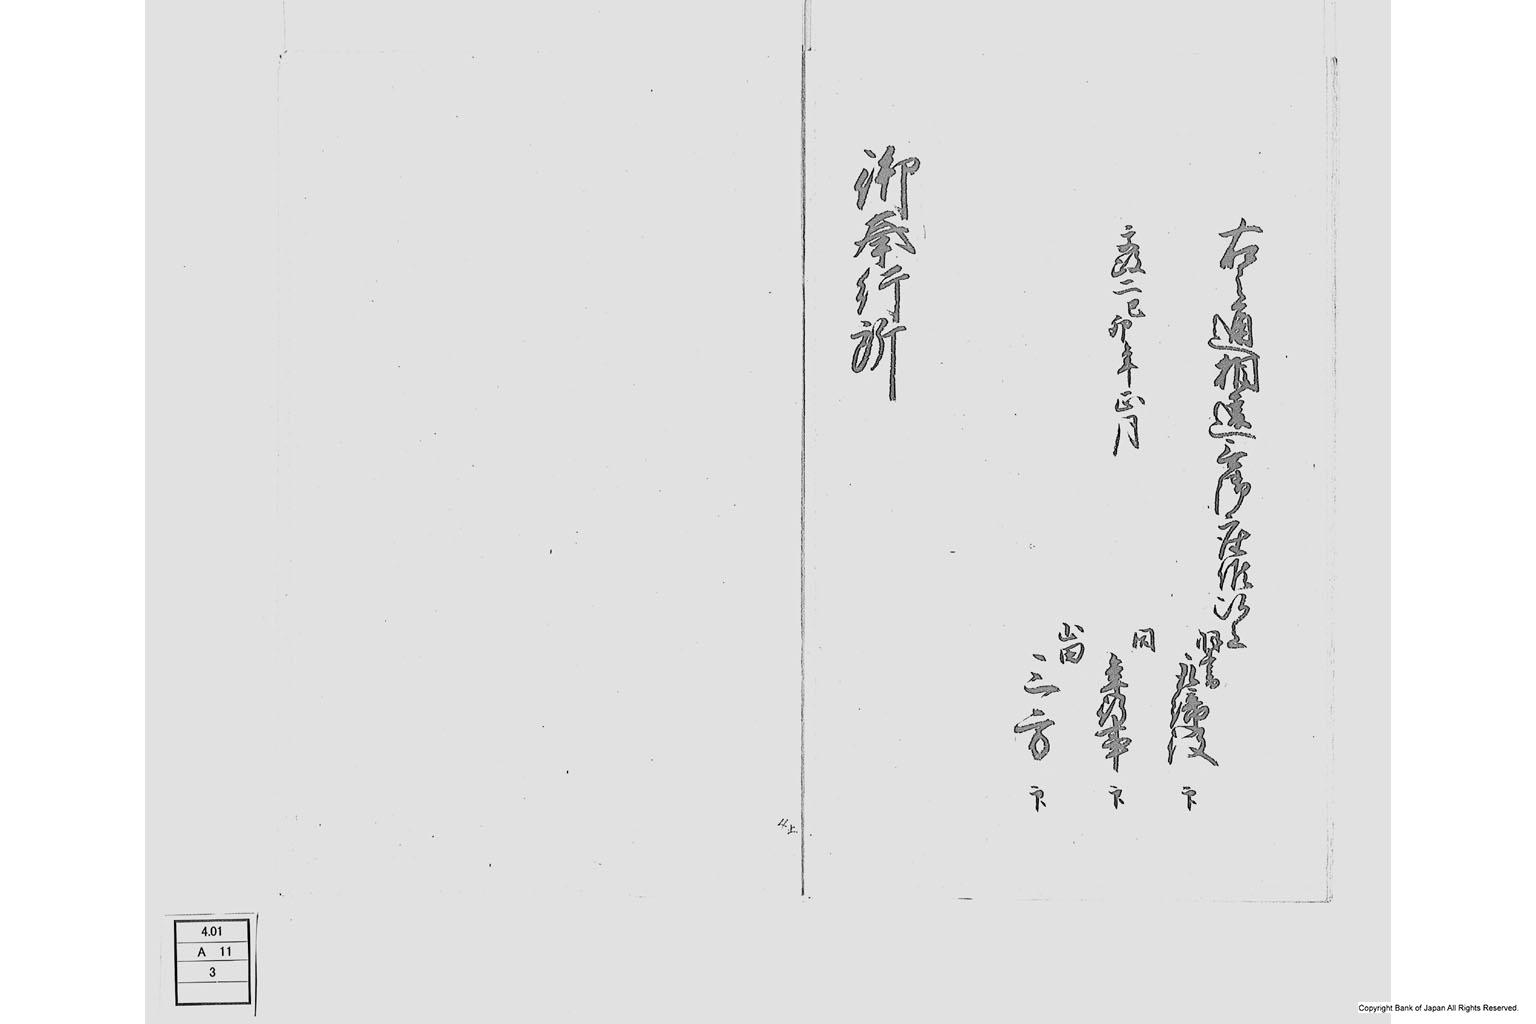 右之通相違無御座候以上
羽書
同
山田
三方
文政二己卯年正月
印
印
印
御奉行所
4上
4.01
A 11
3
Copyright Bank of Japan All Rights Reserved.